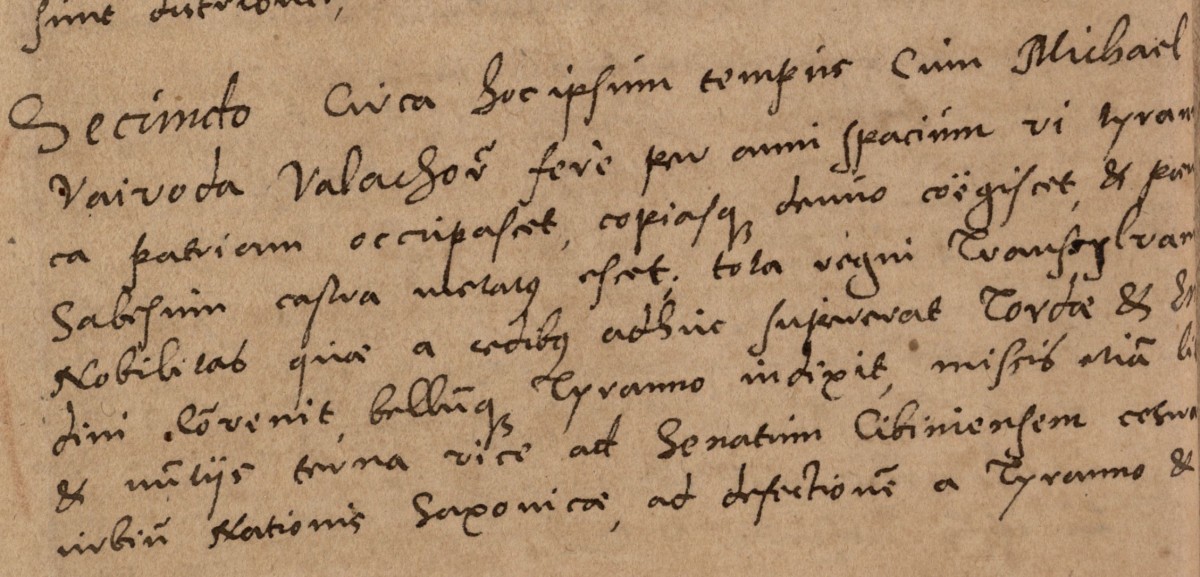 sunt
Secundo Circa hoc ipsum tempus Cum Michael
Vaivoda Valachorū ferè per anni spacium vi tyran
ca patriam occupasset, copiasq denuo coëgisset, & pae
Sabesum castra metatus esset, tota regni Transylvan
Nobilitas quæ a cedibus adhuc supererat Tordæ &
dini Cōvenit, bellūq Tyranno indixit, missis etiā li
& nūtijs terna vice ad Senatum Cibiniensem
urbiū Nationis Saxonicæ, ad defectionē a Tyranno &